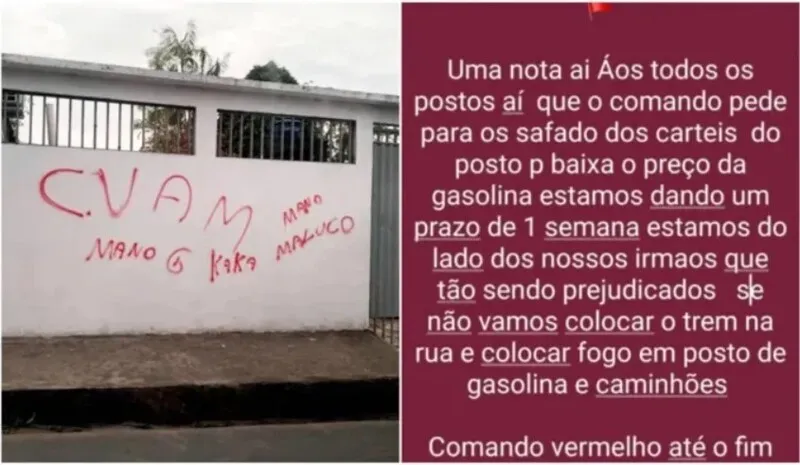 C.V.A M
MANO G KAKA MANO MALUCO
Uma nota ai Áos todos os
postos aí que o comando pede
para os safado dos carteis do
posto p baixa o preço da
gasolina estamos dando um
prazo de 1 semana estamos do
lado dos nossos irmaos que
tão sendo prejudicados se
não vamos colocar o trem na
rua e colocar fogo em posto de
gasolina e caminhões
Comando vermelho até o fim